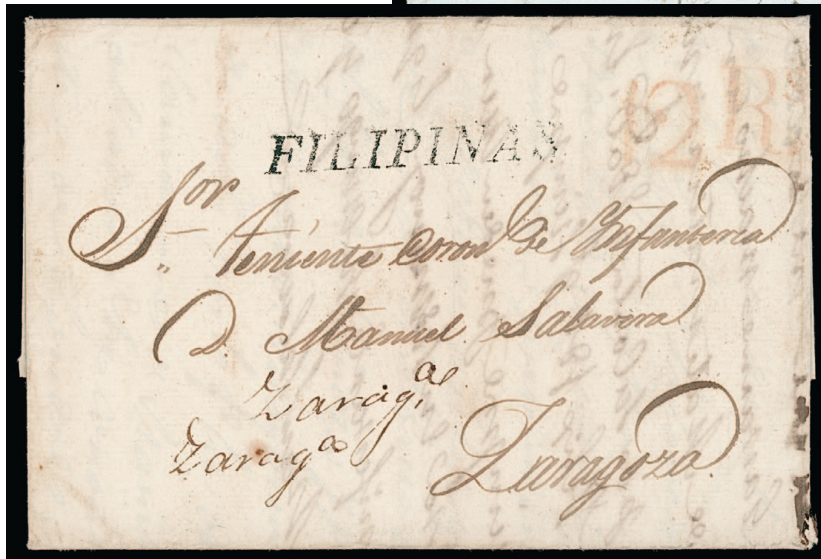 12 Rs
FILIPINAS
Sor Teniente Coronl de Infanteria
D. Manuel Salavera
Zaragª
Zaragª
Zaragoza